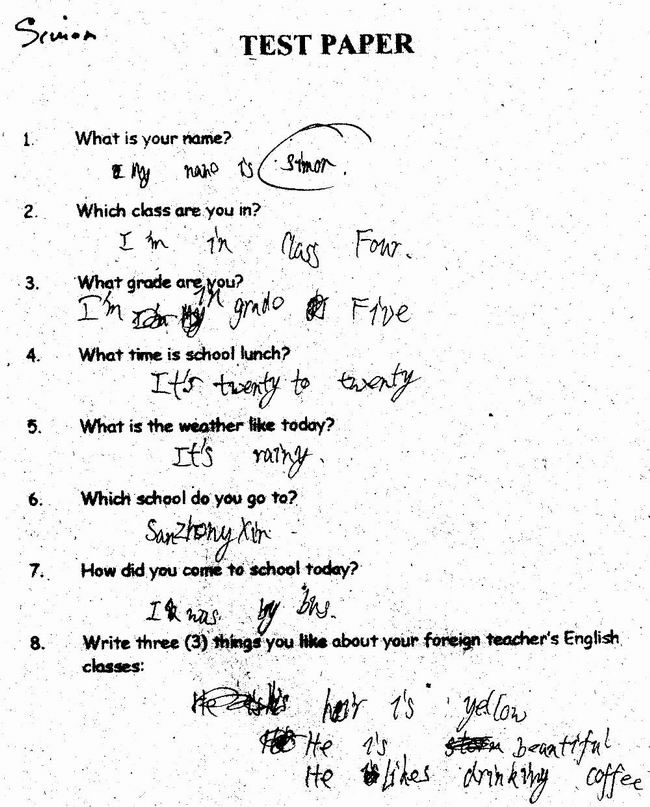 Simon
TEST PAPER
1. What is your name?
My name is Simon.
2. Which class are you in?
I'm in Class Four.
3. What grade are you?
I'm in grade Five
4. What time is school lunch?
It's twenty to twenty
5. What is the weather like today?
It's rainy.
6. Which school do you go to?
SanZhongXin
7. How did you come to school today?
I was by bus.
8. Write three (3) things you like about your foreign teacher's English
classes:
hair is yellow
He is beautiful
He likes drinking coffee